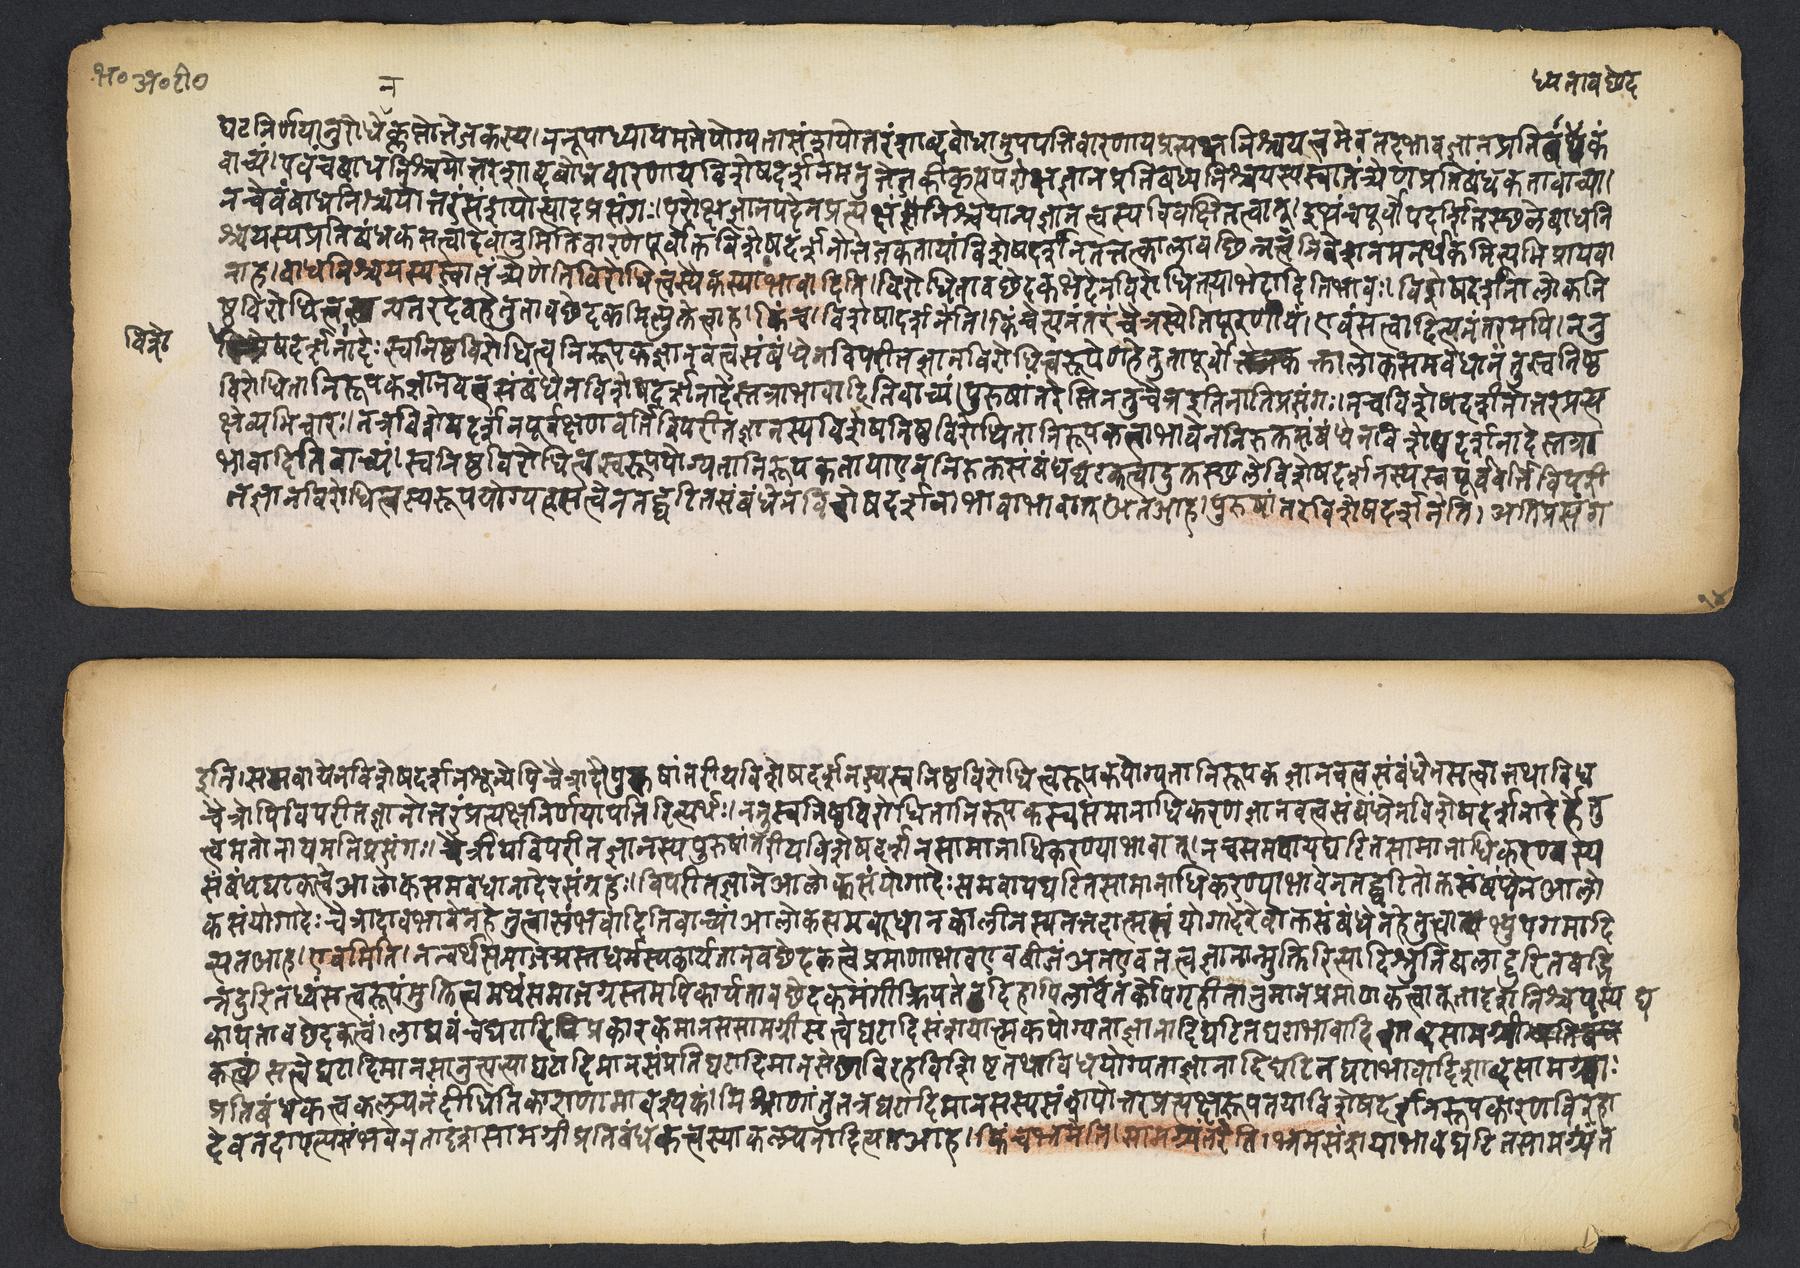 भ० अ० टी०
न
ध्यतावछेद
घटनिर्णयानुरोधेकॢप्तोत्तेजकस्य। ननूपाध्यायमतेयोग्यतासंशयोत्तरंशाब्दबोधानुपपत्तिवारणायप्रत्यक्षनिश्चयत्वमेवतदभावज्ञानप्रतिबंधकं
वाच्यं। एवंचबाधनिश्चयोत्तरंशाब्दबोधवारणायविशेषदर्शनमनुत्तेजकीकृत्यपरोक्षज्ञानप्रतिबध्यनिश्चयस्यस्वातंत्र्येणप्रतिबंधकतावाच्या।
नन्वेवंबाधनिश्चयोत्तरंसंशयोत्पादप्रसंगः। परोक्षज्ञानपदेनप्रत्यक्षनिश्चयान्यज्ञानत्वस्यविवक्षितत्वात्। इत्थंचपूर्वोपदर्शितस्थलेबाधनि
श्चयस्यप्रतिबंधकसत्त्वादेवानुमितिवारणेपूर्वोक्तविशेषदर्शनोत्तेजकतायांविशेषदर्शनेतत्तत्कालावछिन्नत्वनिवेशनमनर्थकमित्यभिप्रायवा
नाह। बाधनिश्चयस्यस्वातंत्र्येणेतिविरोधित्वस्यैकस्याभावादिति। विरोधितावछेदकभेदेनविरोधितयाभेदादितिभावः। विशेषदर्शनालोकनि
ष्ठविरोधित्वान्यतरदेवहेतुतावछेदकमित्युक्तेत्वाह। किंच। विशेषादर्शनेति। किंचेत्यनंतरंचैत्रस्येतिपूरणीयं। एवंसत्त्वादित्यनंतरमपि। ननु
विशे
षदर्शनादेः स्वनिष्ठविरोधित्वनिरूपकज्ञानवत्त्वसंबंधेनविपरीतज्ञानविरोधित्वरूपेणहेतुतापूर्वोक्तालोकसमवधानंतुस्वनिष्ठ
विरोधितानिरूपकज्ञानवत्त्वसंबंधेनविशेषदर्शनादेस्तत्राभावादितिवाच्यं। पुरुषांतरेस्तिनतुचैत्रइतिनातिप्रसंगः। नचविशेषदर्शनोत्तरप्रत्य
क्षेव्यभिचारः। तत्रविशेषदर्शनपूर्वक्षणवर्त्तिविपरीतज्ञानस्यविशेषनिष्ठविरोधितानिरूपकत्वाभावेननिरुक्तसंबंधेनविशेषदर्शनादेस्तत्रा
भावादितिवाच्यं। स्वनिष्ठविरोधित्वस्वरूपयोग्यतानिरूपकतायाएवनिरुक्तसंबंधघटकत्वादुक्तस्थलेविशेषदर्शनस्यस्वपूर्ववर्त्तिविपरी
तज्ञानविरोधित्वस्वरूपयोग्यत्वसत्त्वेनतद्घटितसंबंधेनविशेषदर्शनाभावाभावात् अतआह। पुरुषांतरेविशेषदर्शनेति। अतिप्रसंग
१४
इति। समवायेनविशेषदर्शनशून्येपिचैत्रादौपुरुषांतरीयविशेषदर्शनस्यस्वनिष्ठविरोधित्वरूपकयोग्यतानिरूपकज्ञानवत्त्वसंबंधेनसत्त्वात्तथाविध
चैत्रोपिविपरीतज्ञानोत्तरंप्रत्यक्षनिर्णयापत्तिरित्यर्थः। ननुस्वनिष्ठविरोधितानिरूपकस्वसमानाधिकरणज्ञानवत्त्वसंबंधेनविशेषदर्शनादेर्हेतु
त्वमतोनायमतिप्रसंगः। चैत्रीयविपरीतज्ञानस्यपुरुषांतरीयविशेषदर्शनसामानाधिकरण्याभावात्। नचसमवायघटितसामानाधिकरण्यस्य
संबंधघटकत्वेआलोकसमवधानादेरसंग्रहः। विपरीतज्ञानेआलोकसंयोगादेः समवायघटितसामानाधिकरण्याभावेनतद्घटितोक्तसंबंधेनआलो
कसंयोगादेः चैत्रादावभावेनहेतुत्वासंभवादितिवाच्यं। आलोकसमवधानकालीनस्यतत्तदात्मसंयोगादेरेवोक्तसंबंधेनहेतुत्वाभ्युपगमादि
त्यतआह। एवमिति। नन्वर्थसमाजग्रस्तधर्मस्यकार्यतानवछेदकत्वेप्रमाणाभावएवबीजंअतएवतत्त्वज्ञानान्मुक्तिरित्यादिश्रुतिबलाद्दुरितवद्भि
न्नंदुरितध्वंसत्वरूपंमुक्तित्वमर्थसमाजग्रस्तमपिकार्यतावछेदकमंगीक्रियतेतदिहापिलाघवतर्कोपगृहीतानुमानप्रमाणकत्वात्तादृशनिश्चयत्वस्य
घ
कार्यतावछेदकत्वं। लाघवंचघटादिप्रकारकमानससामग्रीसत्त्वेघटादिसंशयात्मकयोग्यताज्ञानादिघटितघटाभावादिसामग्री
कत्वसत्त्वेघटादिमानसानुत्पत्त्याघटादिमानसंप्रतिघटादिमानसेछाविरहविशिष्टतथाविधयोग्यताज्ञानादिघटितघटाभावादिशाब्दसामग्र्याः
प्रतिबंधकत्वकल्पनंदीधितिकाराणामावश्यकं। मिश्राणांतुतत्रघटादिमानसस्यसंशयोत्तरप्रत्यक्षरूपतयाविशेषदर्शनरूपकारणविरहा
देवतदापत्त्यसंभवेनतादृशसामग्रीप्रतिबंधकत्वस्याकल्पनादित्यतआह। किंचभ्रमेति। सामग्र्यंतरेति। भ्रमसंशयाभावघटितसामग्र्यंत